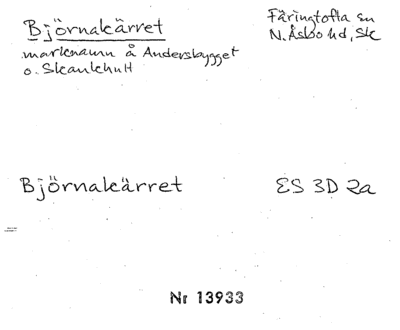 Björnakärret
Färingtofta sn
N. Åsbo hd, Sk
marknamn å Andersbygget
o. Skankhult
Björnakärret
ES 3D 2a
Nr 13933